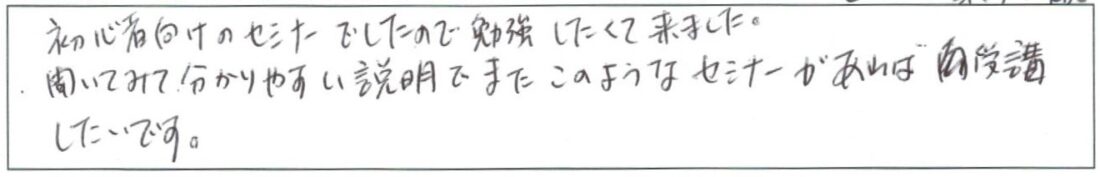 初心者向けのセミナーでしたので勉強したくて来ました。
聞いてみて分かりやすい説明でまたこのようなセミナーがあれば再受講
したいです。